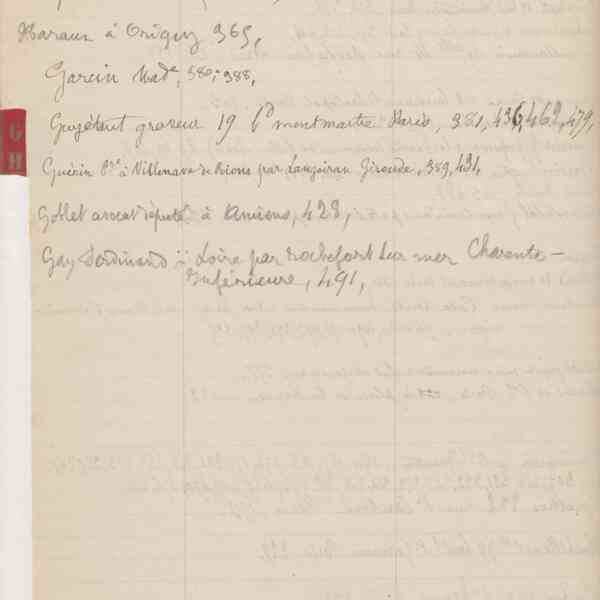 à Origny 365,
Garcin Made, 380; 388,
Guyétant graveur 19 Bd montmartre Paris, 381, 436, 462, 479,
Guérin Pre à Villenave de Rions par Langoiran Gironde, 389, 431,
Goblet avocat député à Amiens, 428,
Gay Ferdinand à Loire par Rochefort sur mer Charente-
Inférieure, 491,
G
H